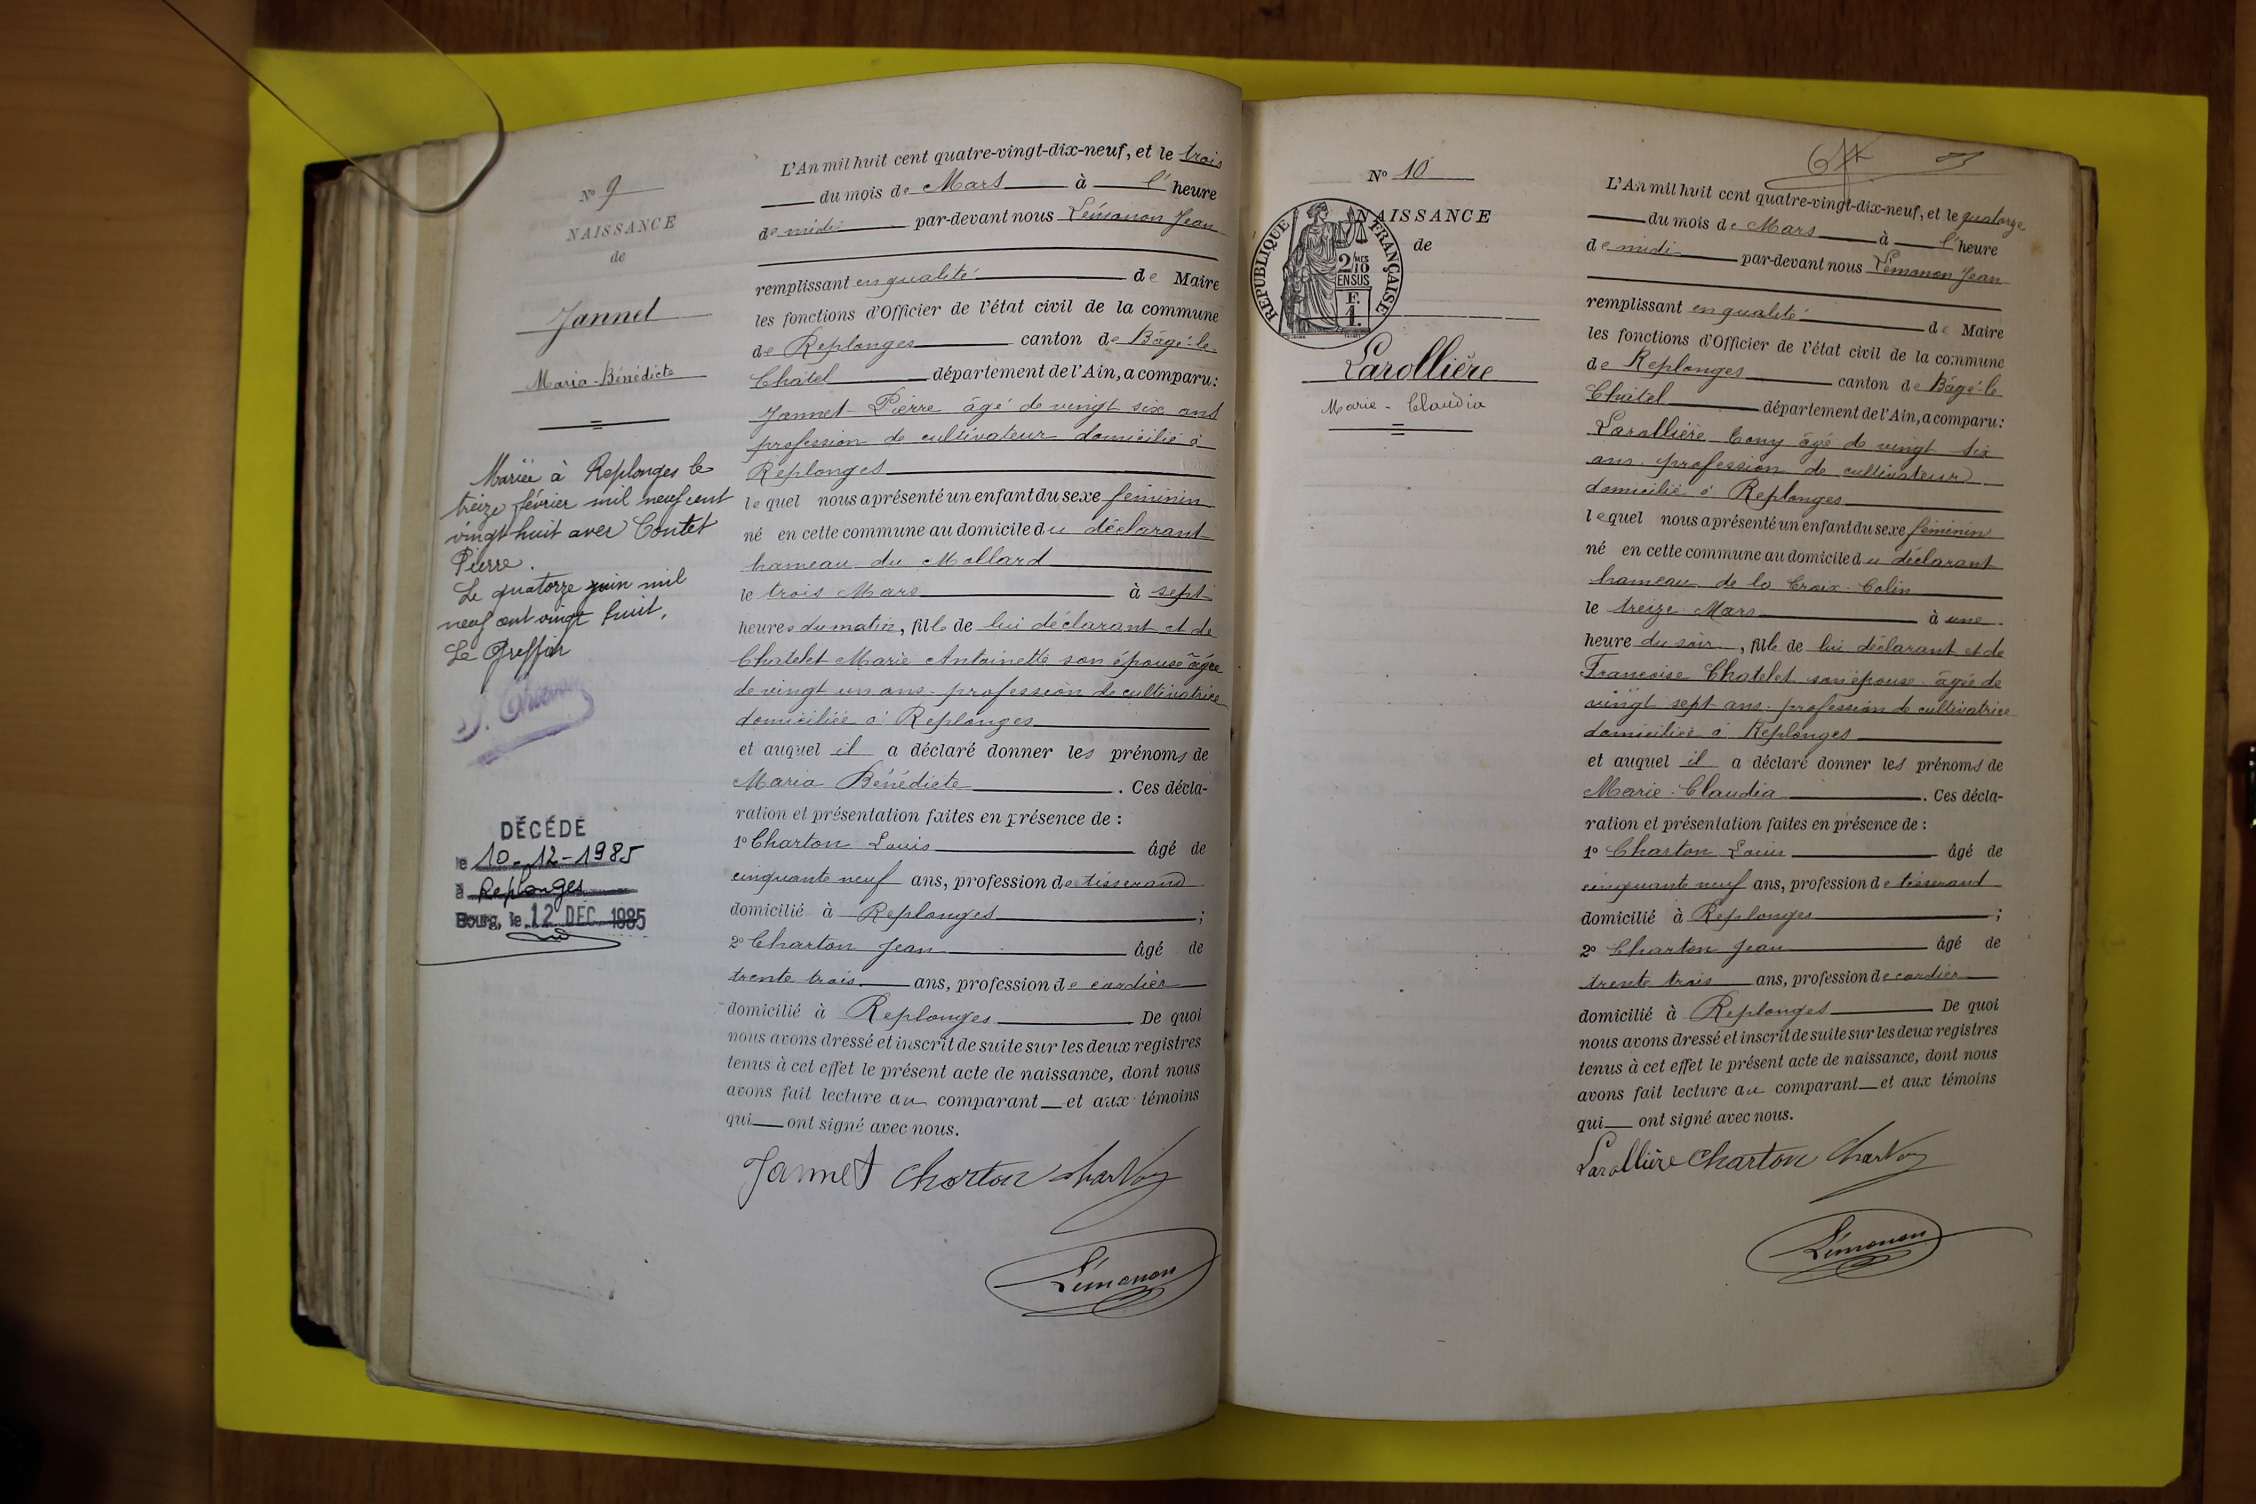 Nº 9
NAISSANCE
de
Jannet
Maria-Bénédicte
Mariée à Replonges le
treize février mil neuf cent
vingt huit avec Contet
Pierre.
Le quatorze juin mil
neuf cent vingt huit.
Le Greffier
DÉCÉDÉ
le 10-12-1985
à Replonges
Bourg, le 12 DEC. 1985
L'An mil huit cent quatre-vingt-dix-neuf, et le trois
du mois de Mars à l' heure
de midi par-devant nous Lémonon Jean
remplissant en qualité de Maire
les fonctions d'Officier de l'état civil de la commune
de Replonges canton de Bâgé-le-
Châtel département de l'Ain, a comparu:
Jannet Pierre âgé de vingt six ans
profession de cultivateur domicilié à
Replonges
lequel nous a présenté un enfant du sexe féminin
né en cette commune au domicile du déclarant
hameau du Mollard
le trois Mars à sept
heures du matin, fille de lui déclarant et de
Chatelet Marie Antoinette son épouse âgée
de vingt un ans profession de cultivatrice
domiciliée à Replonges
et auquel il a déclaré donner les prénoms de
Maria Bénédicte. Ces décla-
ration et présentation faites en présence de :
1º Charton Louis âgé de
cinquante neuf ans, profession de tisserand
domicilié à Replonges ;
2º Charton Jean âgé de
trente trois ans, profession de cordier
domicilié à Replonges De quoi
nous avons dressé et inscrit de suite sur les deux registres
tenus à cet effet le présent acte de naissance, dont nous
avons fait lecture au comparant et aux témoins
qui ont signé avec nous.
Jannet Charton
Lémonon
Nº 10
NAISSANCE
de
REPUBLIQUE FRANÇAISE
2/10 MES
EN SUS
F.
1.
Larollière
Marie-Claudia
L'An mil huit cent quatre-vingt-dix-neuf, et le quatorze
du mois de Mars à l' heure
de midi par-devant nous Lémonon Jean
remplissant en qualité de Maire
les fonctions d'Officier de l'état civil de la commune
de Replonges canton de Bâgé-le
Châtel département de l'Ain, a comparu:
Larollière Tony âgé de vingt six
ans profession de cultivateur
domicilié à Replonges
lequel nous a présenté un enfant du sexe féminin
né en cette commune au domicile du déclarant
hameau de la Croix-Colin
le treize Mars à une
heure du soir, fille de lui déclarant et de
Françoise Chatelet son épouse âgée de
vingt sept ans profession de cultivatrice
domiciliée à Replonges
et auquel il a déclaré donner les prénoms de
Marie-Claudia. Ces décla-
ration et présentation faites en présence de :
1º Charton Louis âgé de
cinquante neuf ans, profession de tisserand
domicilié à Replonges ;
2º Charton Jean âgé de
trente trois ans, profession de cordier
domicilié à Replonges De quoi
nous avons dressé et inscrit de suite sur les deux registres
tenus à cet effet le présent acte de naissance, dont nous
avons fait lecture au comparant et aux témoins
qui ont signé avec nous.
Larollière Charton
Lémonon